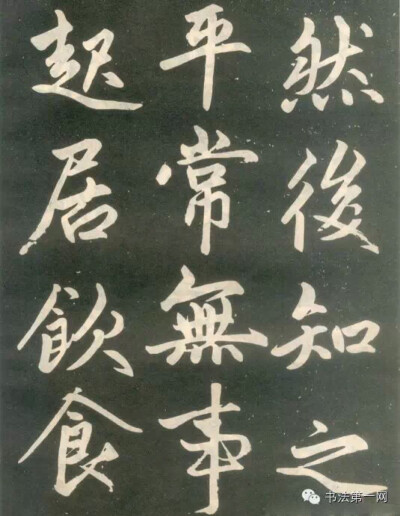 然後知之
平常無事
起居飲食
书法第一网